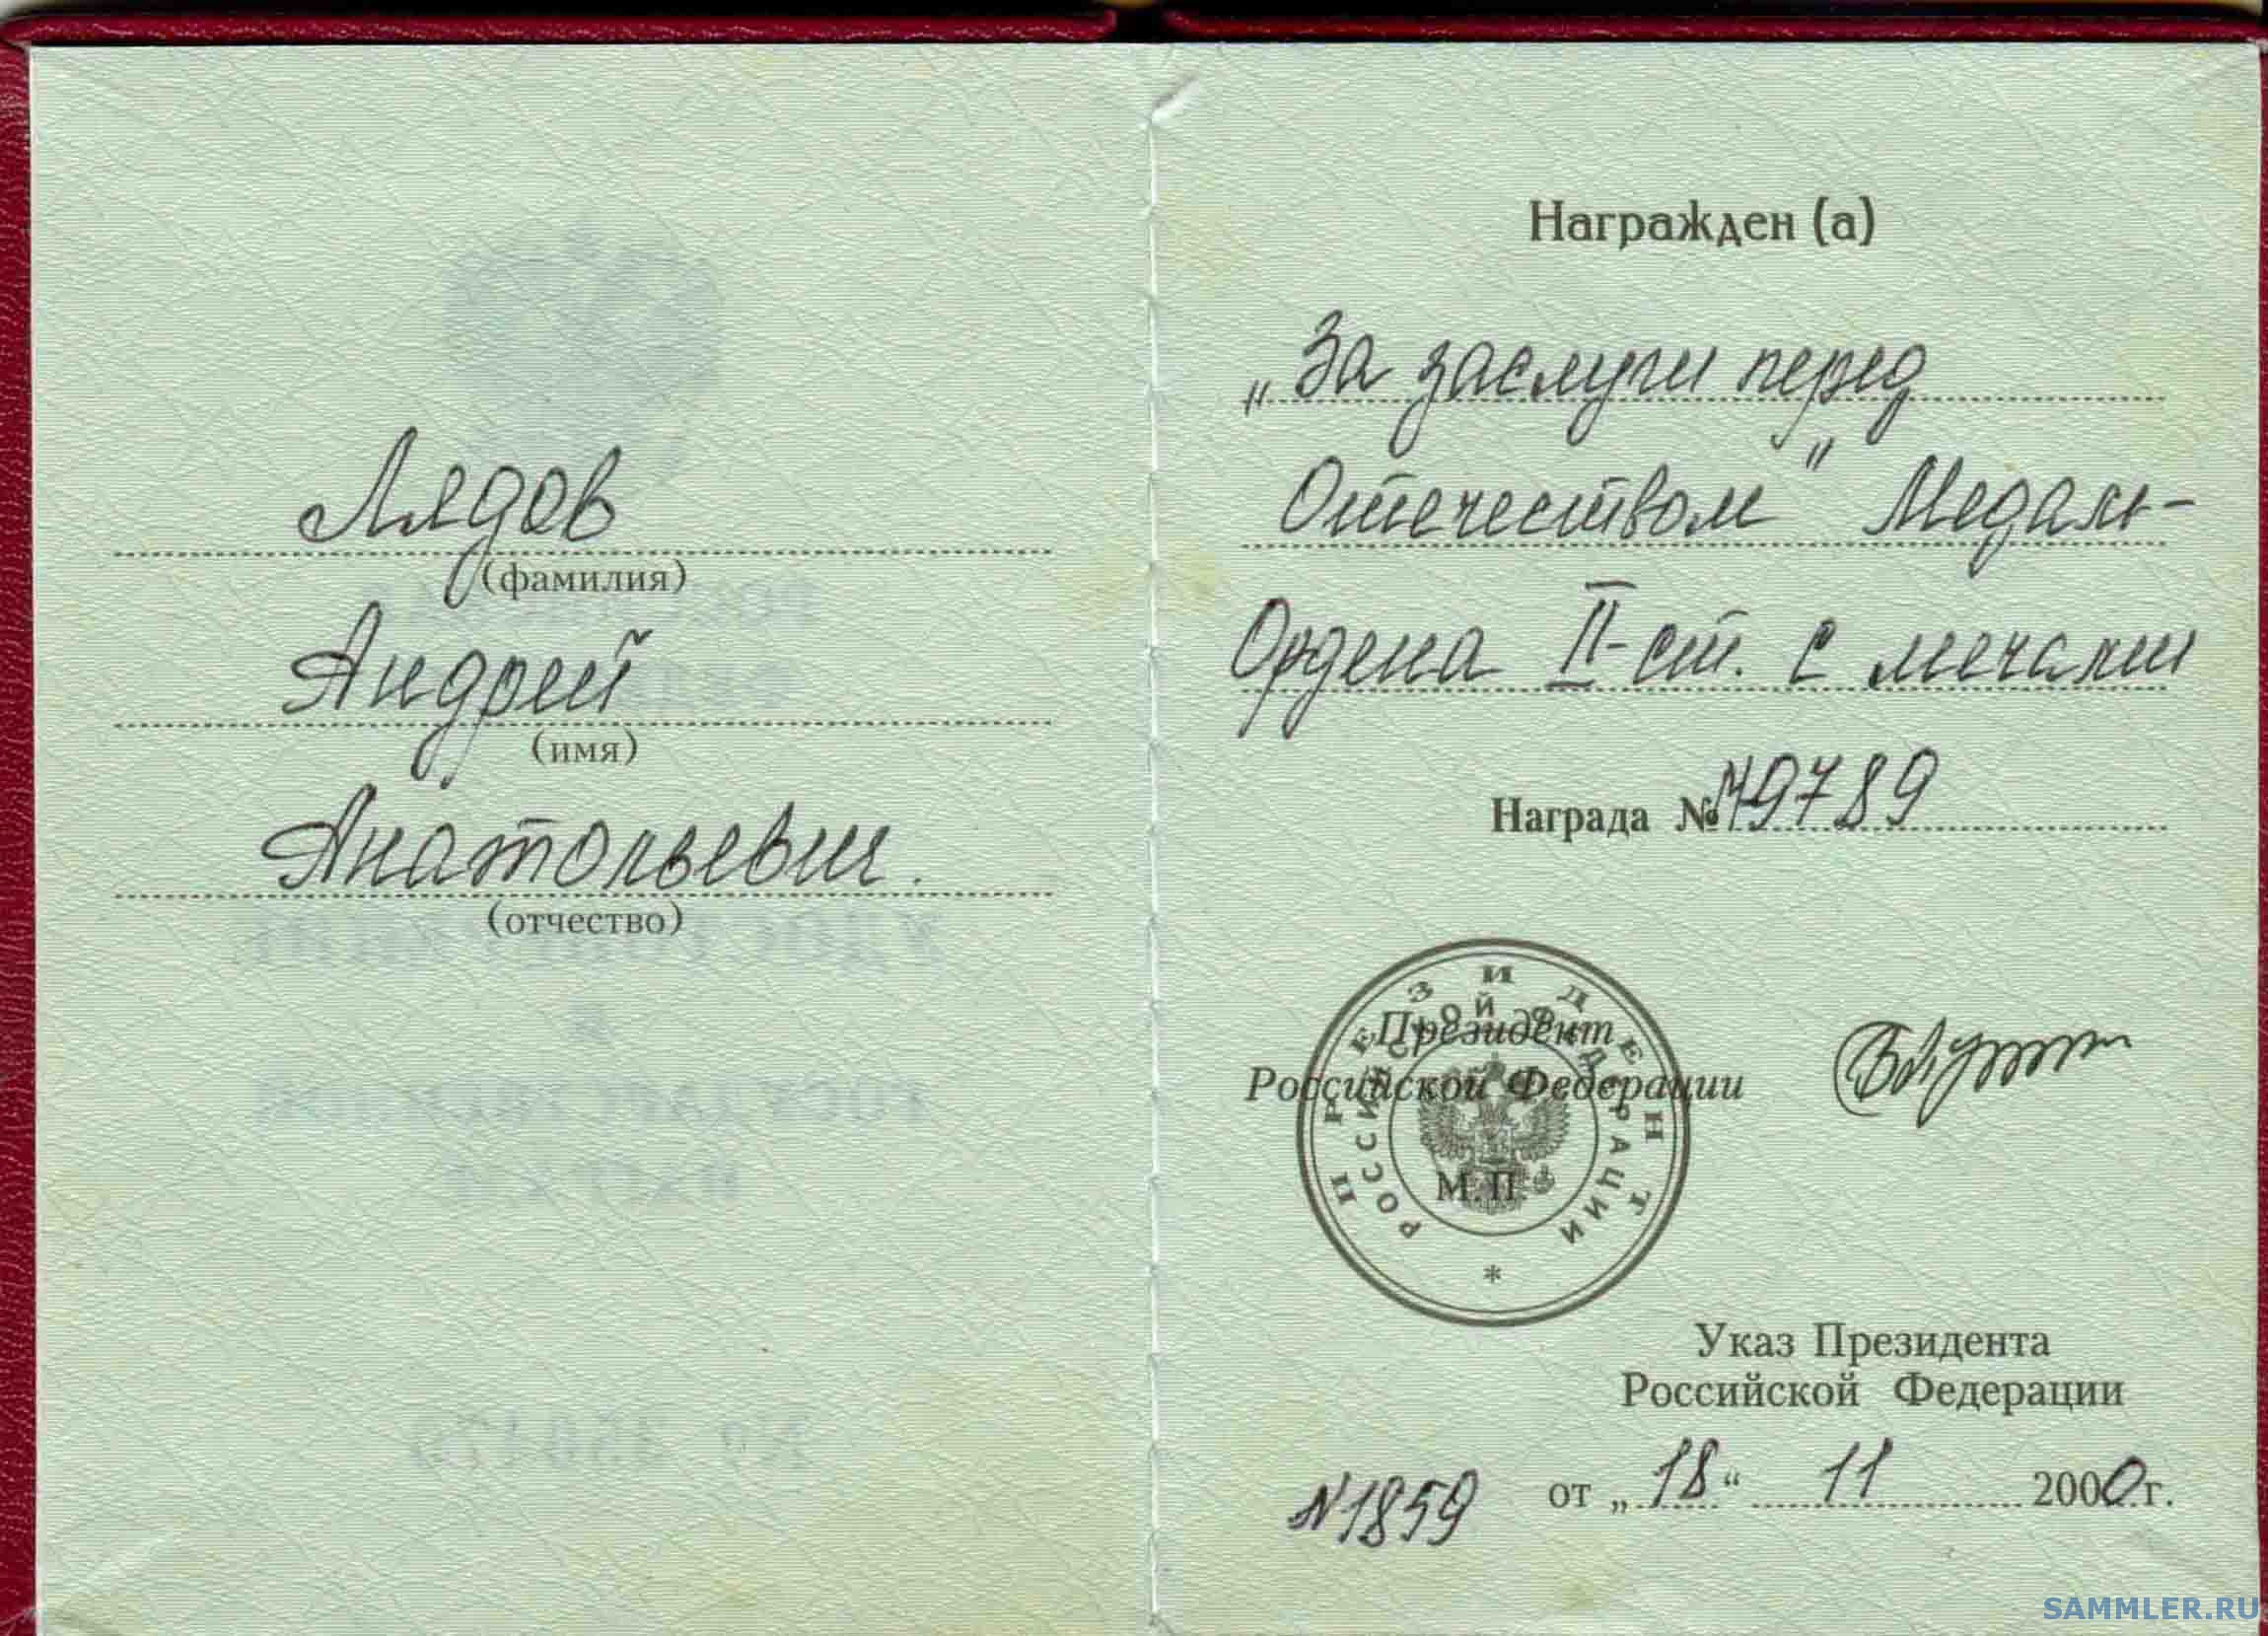 Лядов
(фамилия)
Андрей
(имя)
Анатольевич.
(отчество)
Награжден (а)
„За заслуги перед
Отечеством" Медаль-
Ордена II-ст. с мечами
Награда № 9789
ПРЕЗИДЕНТ
РОССИЙСКОЙ ФЕДЕРАЦИИ
*
Президент
Российской Федерации
М.П.
Указ Президента
Российской Федерации
N1859 от „18“ 11 2000г.
SAMMLER.RU